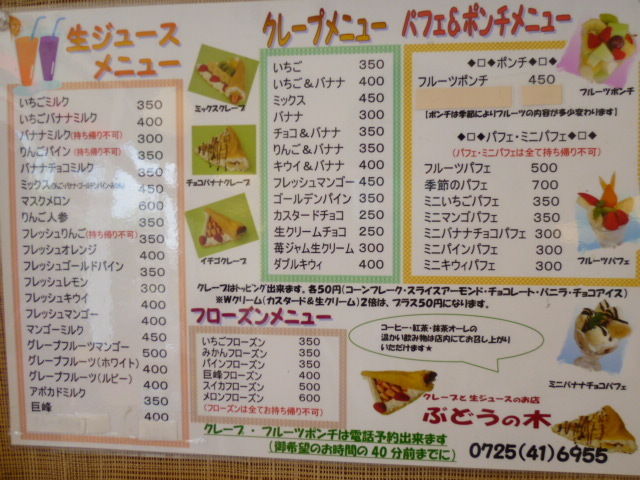 生ジュース
メニュー
いちごミルク 350
いちごバナナミルク 400
バナナミルク(持ち帰り不可) 300
りんごパイン(持ち帰り不可) 350
バナナチョコミルク 350
ミックス 450
マスクメロン 600
りんご人参 350
フレッシュりんご(持ち帰り不可) 350
フレッシュオレンジ 400
フレッシュゴールドパイン 350
フレッシュレモン 300
フレッシュキウイ 400
フレッシュマンゴー 400
マンゴーミルク 450
グレープフルーツマンゴー 500
グレープフルーツ(ホワイト) 400
グレープフルーツ(ルビー) 400
アボカドミルク 400
巨峰 400
ミックスクレープ
チョコバナナクレープ
イチゴクレープ
クレープメニュー
いちご 350
いちご&バナナ 400
ミックス 450
バナナ 300
チョコ&バナナ 350
キウイ&バナナ 400
フレッシュマンゴー 450
ゴールデンパイン 350
カスタードチョコ 250
生クリームチョコ 250
苺ジャム生クリーム 300
ダブルキウイ 400
パフェ&ポンチメニュー
◆□◆ポンチ◆□◆
フルーツポンチ 450
【ポンチは季節によりフルーツの内容が多少変わります】
フルーツポンチ
◆□◆パフェ・ミニパフェ◆□◆
(パフェ・ミニパフェは全て持ち帰り不可)
フルーツパフェ 500
季節のパフェ 700
ミニいちごパフェ 300
ミニマンゴパフェ 300
ミニバナナチョコパフェ 300
ミニパインパフェ 300
ミニキウィパフェ 300
フルーツパフェ
クレープはトッピング出来ます。各50円(コーンフレーク・スライスアーモンド・チョコレート・バニラ・チョコアイス)
※Wクリーム(カスタード&生クリーム)2倍は、プラス50円になります。
フローズンメニュー
いちごフローズン 350
みかんフローズン 350
パインフローズン 350
巨峰フローズン 400
スイカフローズン 500
メロンフローズン 600
(フローズンは全てお持ち帰り不可)
コーヒー・紅茶・抹茶オーレの
温かい飲み物は店内にてお召し上がり
いただけます★
ミニバナナチョコパフェ
クレープと生ジュースのお店
ぶどうの木
クレープ・フルーツポンチは電話予約出来ます
(御希望のお時間の40分前までに)
0725(41)6955